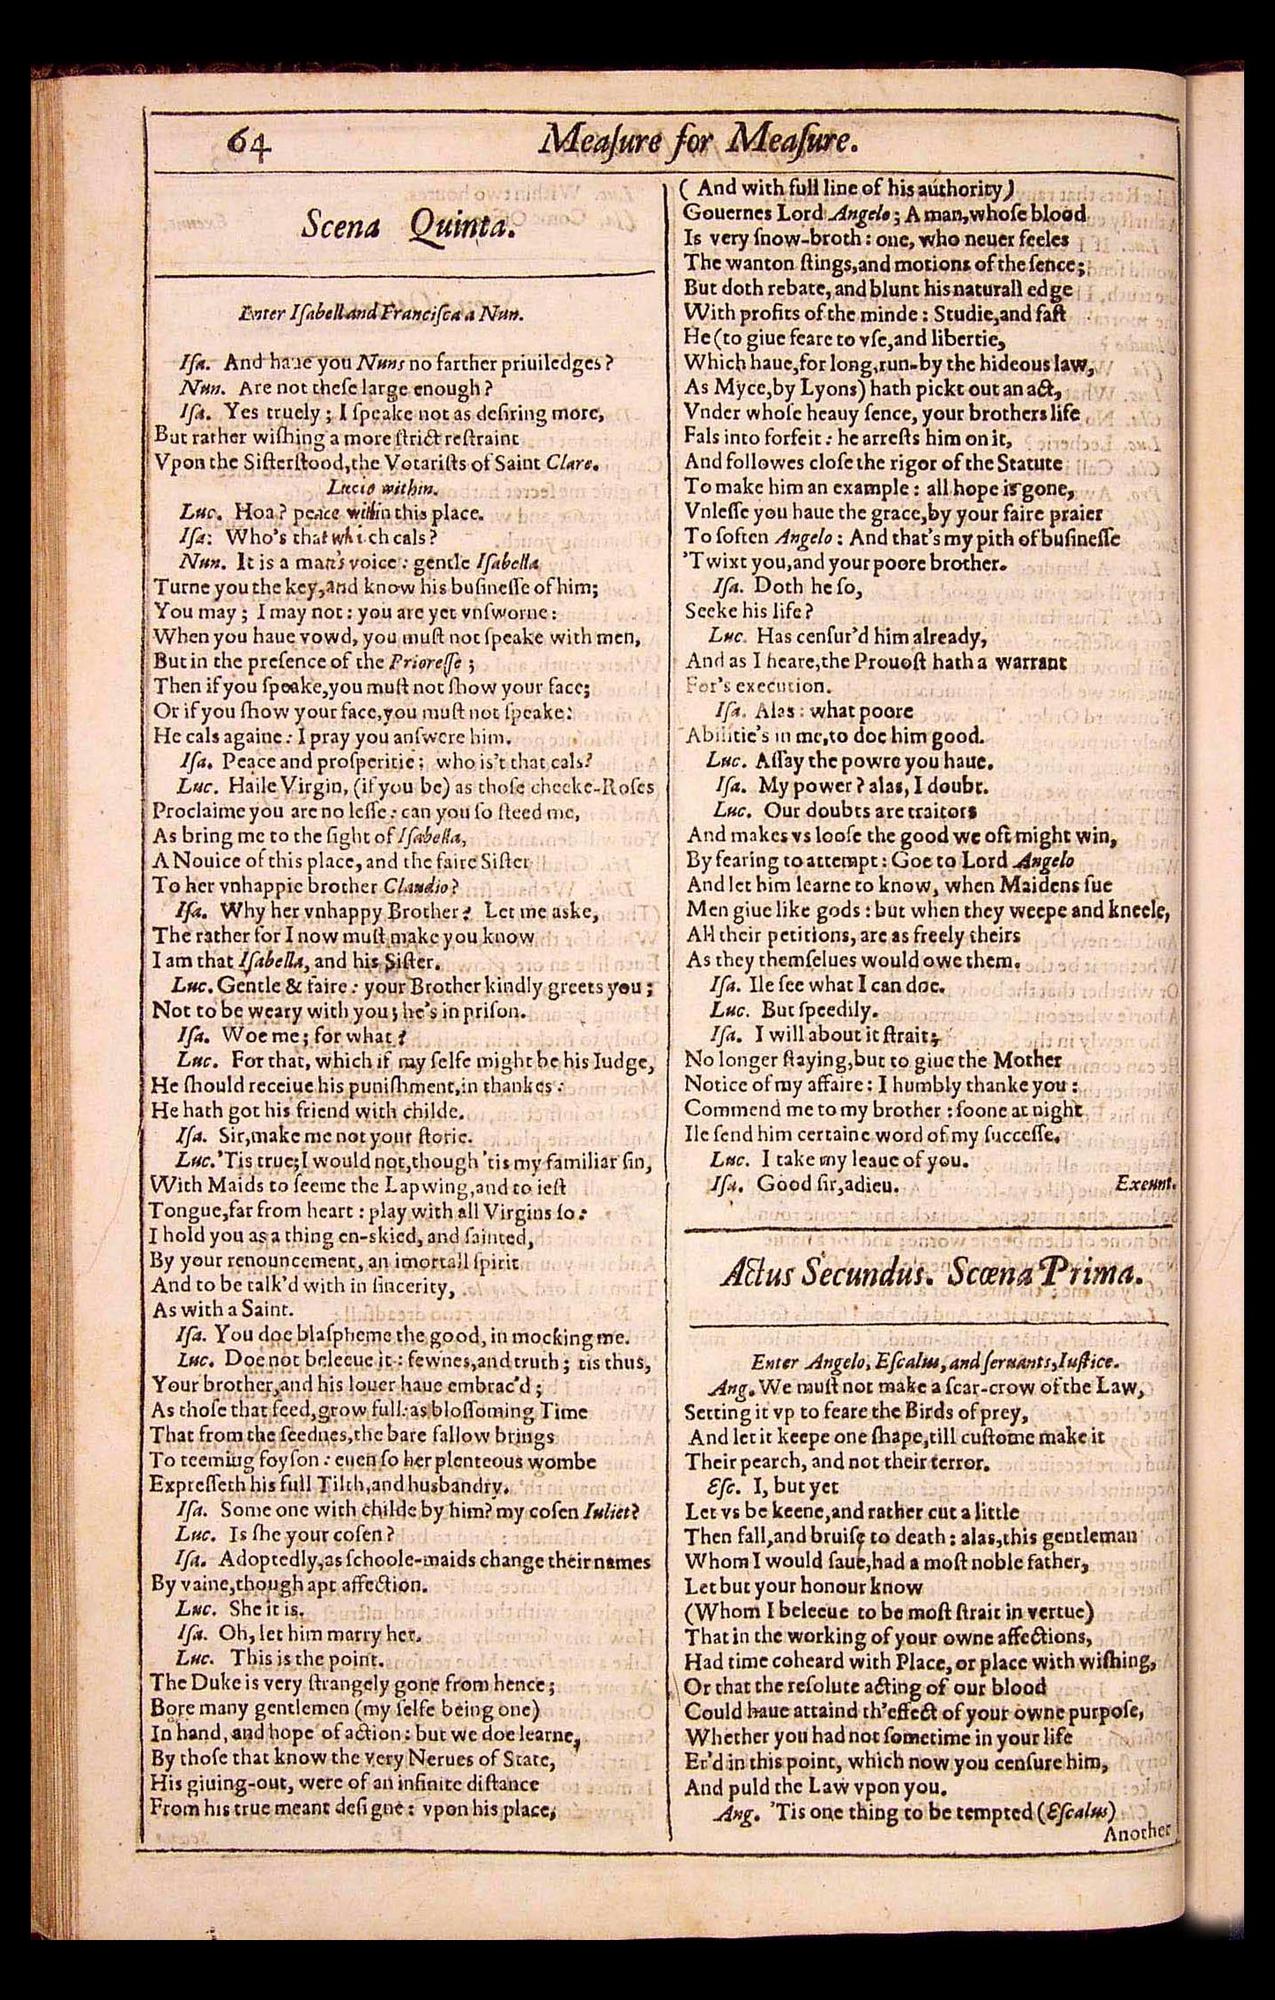 64
Meaſure for Meaſure.
Scena Quinta.
Enter Iſabell and Franciſca a Nun.
Iſa. And haue you Nuns no farther priuiledges?
Nun. Are not theſe large enough?
Iſa. Yes truely; I ſpeake not as deſiring more,
But rather wiſhing a more ſtrict reſtraint
Vpon the Siſterſtood, the Votariſts of Saint Clare.
Lucio within.
Luc. Hoa? peace within this place.
Iſa: Who's that which cals?
Nun. It is a man's voice: gentle Iſabella
Turne you the key, and know his buſineſſe of him;
You may; I may not: you are yet vnſworne:
When you haue vowd, you muſt not ſpeake with men,
But in the preſence of the Prioreſſe;
Then if you ſpeake, you muſt not ſhow your face;
Or if you ſhow your face, you muſt not ſpeake:
He cals againe: I pray you anſwere him.
Iſa. Peace and proſperitie: who is't that cals?
Luc. Haile Virgin, (if you be) as thoſe cheeke-Roſes
Proclaime you are no leſſe: can you ſo ſteed me,
As bring me to the ſight of Iſabella,
A Nouice of this place, and the faire Siſter
To her vnhappie brother Claudio?
Iſa. Why her vnhappy Brother? Let me aske,
The rather for I now muſt make you know
I am that Iſabella, and his Siſter.
Luc. Gentle & faire: your Brother kindly greets you;
Not to be weary with you; he's in priſon.
Iſa. Woe me; for what?
Luc. For that, which if my ſelfe might be his Iudge,
He ſhould receiue his puniſhment, in thankes:
He hath got his friend with childe.
Iſa. Sir, make me not your ſtorie.
Luc. 'Tis true; I would not, though 'tis my familiar ſin,
With Maids to ſeeme the Lapwing, and to ieſt
Tongue, far from heart: play with all Virgins ſo:
I hold you as a thing en-skied, and ſainted,
By your renouncement, an imortall ſpirit
And to be talk'd with in ſincerity,
As with a Saint.
Iſa. You doe blaſpheme the good, in mocking me.
Luc. Doe not beleeue it: fewnes, and truth; tis thus,
Your brother, and his louer haue embrac'd;
As thoſe that feed, grow full: as bloſſoming Time
That from the ſeednes, the bare fallow brings
To teeming foyſon: euen ſo her plenteous wombe
Expreſſeth his full Tilth, and husbandry.
Iſa. Some one with childe by him? my coſen Iuliet?
Luc. Is ſhe your coſen?
Iſa. Adoptedly, as ſchoole-maids change their names
By vaine, though apt affection.
Luc. She it is.
Iſa. Oh, let him marry her.
Luc. This is the point.
The Duke is very ſtrangely gone from hence;
Bore many gentlemen (my ſelfe being one)
In hand, and hope of action: but we doe learne,
By thoſe that know the very Nerues of State,
His giuing-out, were of an infinite diſtance
From his true meant deſigne: vpon his place,
( And with full line of his authority)
Gouernes Lord Angelo; A man, whoſe blood
Is very ſnow-broth: one, who neuer feeles
The wanton ſtings, and motions of the ſence;
But doth rebate, and blunt his naturall edge
With profits of the minde: Studie, and faſt
He (to giue feare to vſe, and libertie,
Which haue, for long, run-by the hideous law,
As Myce, by Lyons) hath pickt out an act,
Vnder whoſe heauy ſence, your brothers life
Fals into forfeit: he arreſts him on it,
And followes cloſe the rigor of the Statute
To make him an example: all hope is gone,
Vnleſſe you haue the grace, by your faire praier
To ſoften Angelo: And that's my pith of buſineſſe
'Twixt you, and your poore brother.
Iſa. Doth he ſo,
Seeke his life?
Luc. Has cenſur'd him already,
And as I heare, the Prouoſt hath a warrant
For's execution.
Iſa. Alas: what poore
Abilitie's in me, to doe him good.
Luc. Aſſay the powre you haue.
Iſa. My power? alas, I doubt.
Luc. Our doubts are traitors
And makes vs looſe the good we oft might win,
By fearing to attempt: Goe to Lord Angelo
And let him learne to know, when Maidens ſue
Men giue like gods: but when they weepe and kneele,
All their petitions, are as freely theirs
As they themſelues would owe them.
Iſa. Ile ſee what I can doe.
Luc. But ſpeedily.
Iſa. I will about it ſtrait;
No longer ſtaying, but to giue the Mother
Notice of my affaire: I humbly thanke you:
Commend me to my brother: ſoone at night
Ile ſend him certaine word of my ſucceſſe.
Luc. I take my leaue of you.
Iſa. Good ſir, adieu. Exeunt.
Actus Secundus. Scœna Prima.
Enter Angelo, Eſcalus, and ſeruants, Iuſtice.
Ang. We muſt not make a ſcar-crow of the Law,
Setting it vp to feare the Birds of prey,
And let it keepe one ſhape, till cuſtome make it
Their pearch, and not their terror.
Eſc. I, but yet
Let vs be keene, and rather cut a little
Then fall, and bruiſe to death: alas, this gentleman
Whom I would ſaue, had a moſt noble father,
Let but your honour know
(Whom I beleeue to be moſt ſtrait in vertue)
That in the working of your owne affections,
Had time coheard with Place, or place with wiſhing,
Or that the reſolute acting of our blood
Could haue attaind th'effect of your owne purpoſe,
Whether you had not ſometime in your life
Er'd in this point, which now you cenſure him,
And puld the Law vpon you.
Ang. 'Tis one thing to be tempted (Eſcalus)
Another